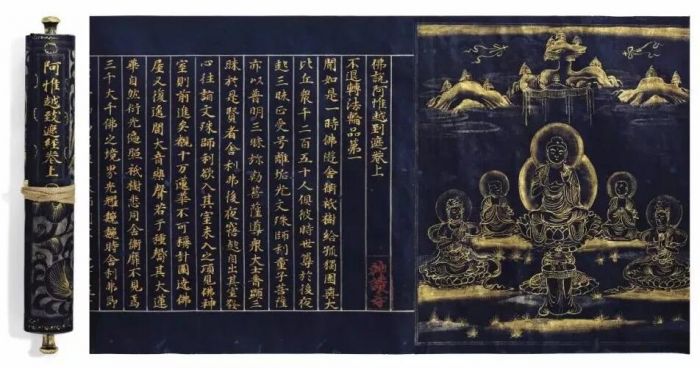 阿惟越致遮經卷上
佛說阿惟越致遮卷上
不退轉法輪品第一
聞如是一時佛遊舍衛祇樹給孤獨園與大
比丘衆千二百五十人俱彼時世尊於後夜
起三昧正受号離垢光文殊師利童子菩薩
亦以普明三昧弥勒菩薩導衆大士普顕三
昧於是賢者舍利弗後夜寤起自出其室發
心往詣文殊師利欲入其室未入之頃見佛神
室則前進矣觀十万蓮華不可稱計圍遶佛
屋又復逸聞大音樂聲若干種聲其大蓮
華自然衍光遍照祇樹悉周舍衛靡不見焉
三千大千佛之境界光耀巍巍時舍利弗即
神護寺